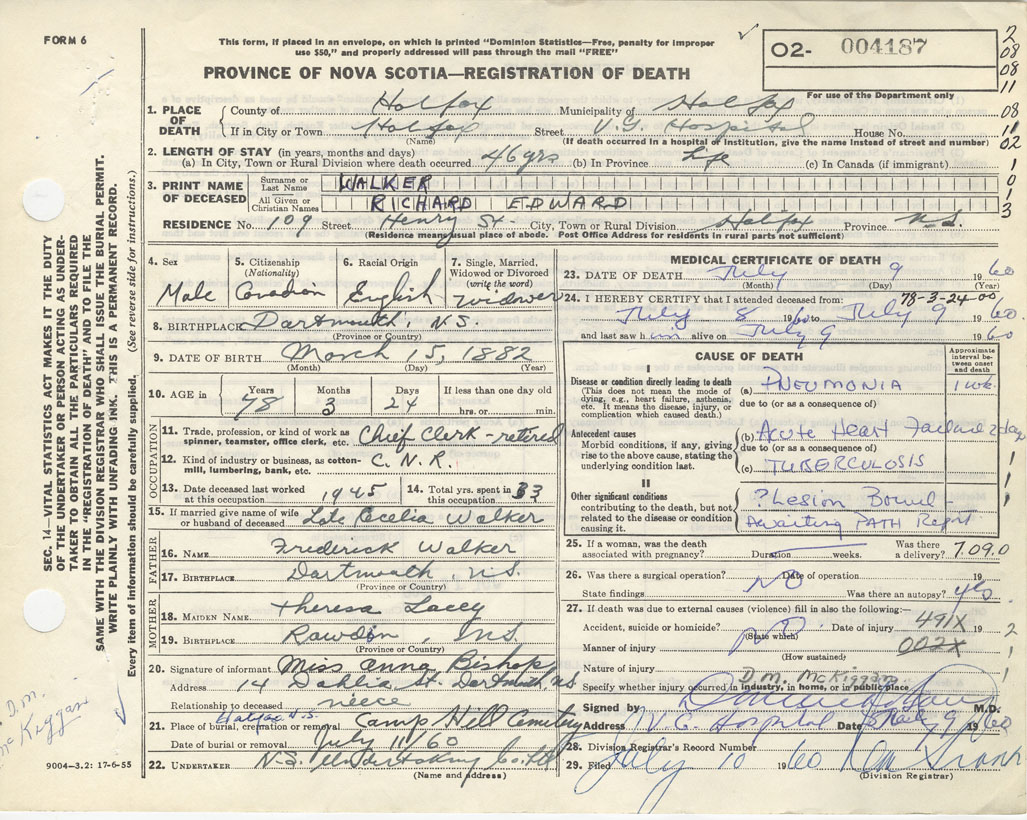 FORM 6
This form, if placed in an envelope, on which is printed "Dominion Statistics—Free, penalty for improper
use $50," and properly addressed will pass through the mail "FREE"
PROVINCE OF NOVA SCOTIA—REGISTRATION OF DEATH
O2- 004187
For use of the Department only
2
08
08
11
08
11
02
1
0
1
3
1. PLACE OF DEATH { County of Halifax Municipality of Halifax
If in City or Town Halifax Street V.G. Hospital House No.
(Name) (If death occurred in a hospital or institution, give the name instead of street and number)
2. LENGTH OF STAY (in years, months and days)
(a) In City, Town or Rural Division where death occurred 46 yrs (b) In Province Life (c) In Canada (if immigrant)
3. PRINT NAME OF DECEASED { Surname or Last Name WALKER
All Given or Christian Names RICHARD EDWARD
RESIDENCE No. 109 Street Henry St. City, Town or Rural Division Halifax Province N.S.
(Residence means usual place of abode. Post Office Address for residents in rural parts not sufficient)
4. Sex Male
5. Citizenship (Nationality) Canadian
6. Racial Origin English
7. Single, Married, Widowed or Divorced (write the word) widower
8. BIRTHPLACE Dartmouth, N.S.
(Province or Country)
9. DATE OF BIRTH March 15, 1882
(Month) (Day) (Year)
10. AGE in Years 78 Months 3 Days 24 If less than one day old hrs. or min.
OCCUPATION
11. Trade, profession or kind of work as spinner, teamster, office clerk, etc. Chief Clerk - retired
12. Kind of industry or business, as cotton-mill, lumbering, bank, etc. C.N.R.
13. Date deceased last worked at this occupation 1945
14. Total yrs. spent in this occupation 33
15. If married give name of wife or husband of deceased Late Cecelia Walker
FATHER
16. NAME Frederick Walker
17. BIRTHPLACE Dartmouth, N.S.
(Province or Country)
MOTHER
18. MAIDEN NAME Theresa Lacey
19. BIRTHPLACE Rawdon, N.S.
(Province or Country)
20. Signature of informant Miss Anna Bishop
Address 14 Dahlia St. Dartmouth, N.S.
Relationship to deceased niece
21. Place of burial, cremation or removal Halifax N.S. Camp Hill Cemetery
Date of burial or removal July 11/60
22. UNDERTAKER N.S. Undertaking Co. Ltd
(Name and address)
MEDICAL CERTIFICATE OF DEATH
23. DATE OF DEATH July 9 1960
(Month) (Day) (Year)
78-3-24-00
24. I HEREBY CERTIFY that I attended deceased from:
July 8 1960 to July 9 1960
and last saw him alive on July 9 1960
CAUSE OF DEATH
Approximate interval between onset and death
I
Disease or condition directly leading to death
(This does not mean the mode of dying, e.g., heart failure, asthenia, etc. It means the disease, injury, or complication which caused death.)
(a) PNEUMONIA 1 wk.
due to (or as a consequence of)
Antecedent causes
Morbid conditions, if any, giving rise to the above cause, stating the underlying condition last.
(b) Acute Heart Failure 2 days
due to (or as a consequence of)
(c) TUBERCULOSIS
II
Other significant conditions
contributing to the death, but not related to the disease or condition causing it.
? Lesion Bowel
Awaiting PATH Report
25. If a woman, was the death associated with pregnancy? Duration weeks. Was there a delivery? 7.090
26. Was there a surgical operation? No Date of operation 19
State findings Was there an autopsy? yes
27. If death was due to external causes (violence) fill in also the following:—
Accident, suicide or homicide? Date of injury 491X 19
(State which)
Manner of injury 002X
(How sustained)
Nature of injury D.M. McKiggan
Specify whether injury occurred in industry, in home, or in public place
Signed by M.D.
Address V.G. Hospital Date July 9 1960
28. Division Registrar's Record Number
29. Filed July 10 1960
(Division Registrar)
SEC. 14—VITAL STATISTICS ACT MAKES IT THE DUTY
OF THE UNDERTAKER OR PERSON ACTING AS UNDER-
TAKER TO OBTAIN ALL THE PARTICULARS REQUIRED
IN THE "REGISTRATION OF DEATH" AND TO FILE THE
SAME WITH THE DIVISION REGISTRAR WHO SHALL ISSUE THE BURIAL PERMIT.
WRITE PLAINLY WITH UNFADING INK. THIS IS A PERMANENT RECORD.
Every item of information should be carefully supplied. (See reverse side for instructions.)
D.M.
McKiggan
9004-3.2: 17-6-55